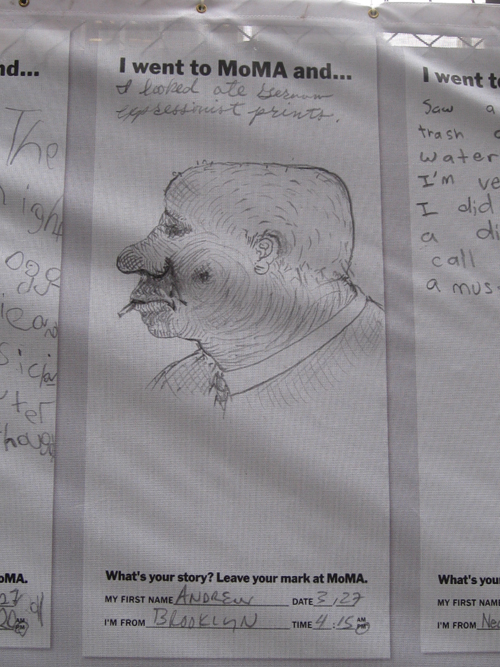 nd...
The
igh
I went to MoMA and...
I looked ate German
expressionist prints.
What's your story? Leave your mark at MoMA.
MY FIRST NAME ANDREW DATE 3,27
I'M FROM BROOKLYN TIME 4:15 AM PM
I went to
Saw a
trash
water
I'M ve
I did
a di
call
a mus
What's your
MY FIRST NAME
I'M FROM
oMA.